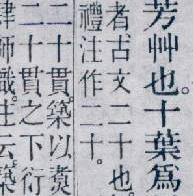 芳艸也。十葉為
者古文二十也。
禮注作二十。
二十貫。築以煑
二十貫之下衍
師職注云築